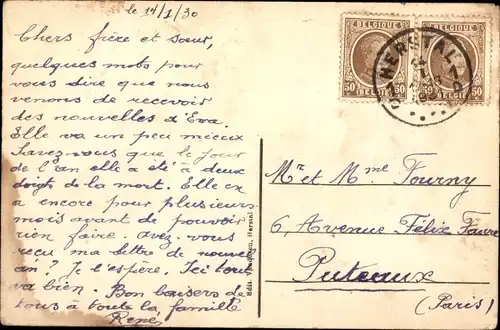 le 14/1/30
Chers frère et sœur,
quelques mots pour
vous dire que nous
venons de recevoir
des nouvelles d'Eva.
Elle va un peu mieux
Savez-vous que le jour
de l'an elle a été à deux
doigts de la mort. Elle en
a encore pour plusieurs
mois avant de pouvoir
rien faire. Avez-vous
reçu ma lettre de nouvel
an? Je l'espère. Ici tout
va bien. Bon baisers de
tous à toute la famille
René
BELGIQUE
50 BELGIË 50
BELGIQUE
50 BELGIË 50
HERSTAL
Mr et Mme Fourny
6, Avenue Félix Faure
Puteaux
(Paris)
Edit. Herstal